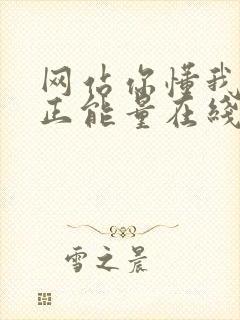 网站你懂我
正能量在线
雪之晨